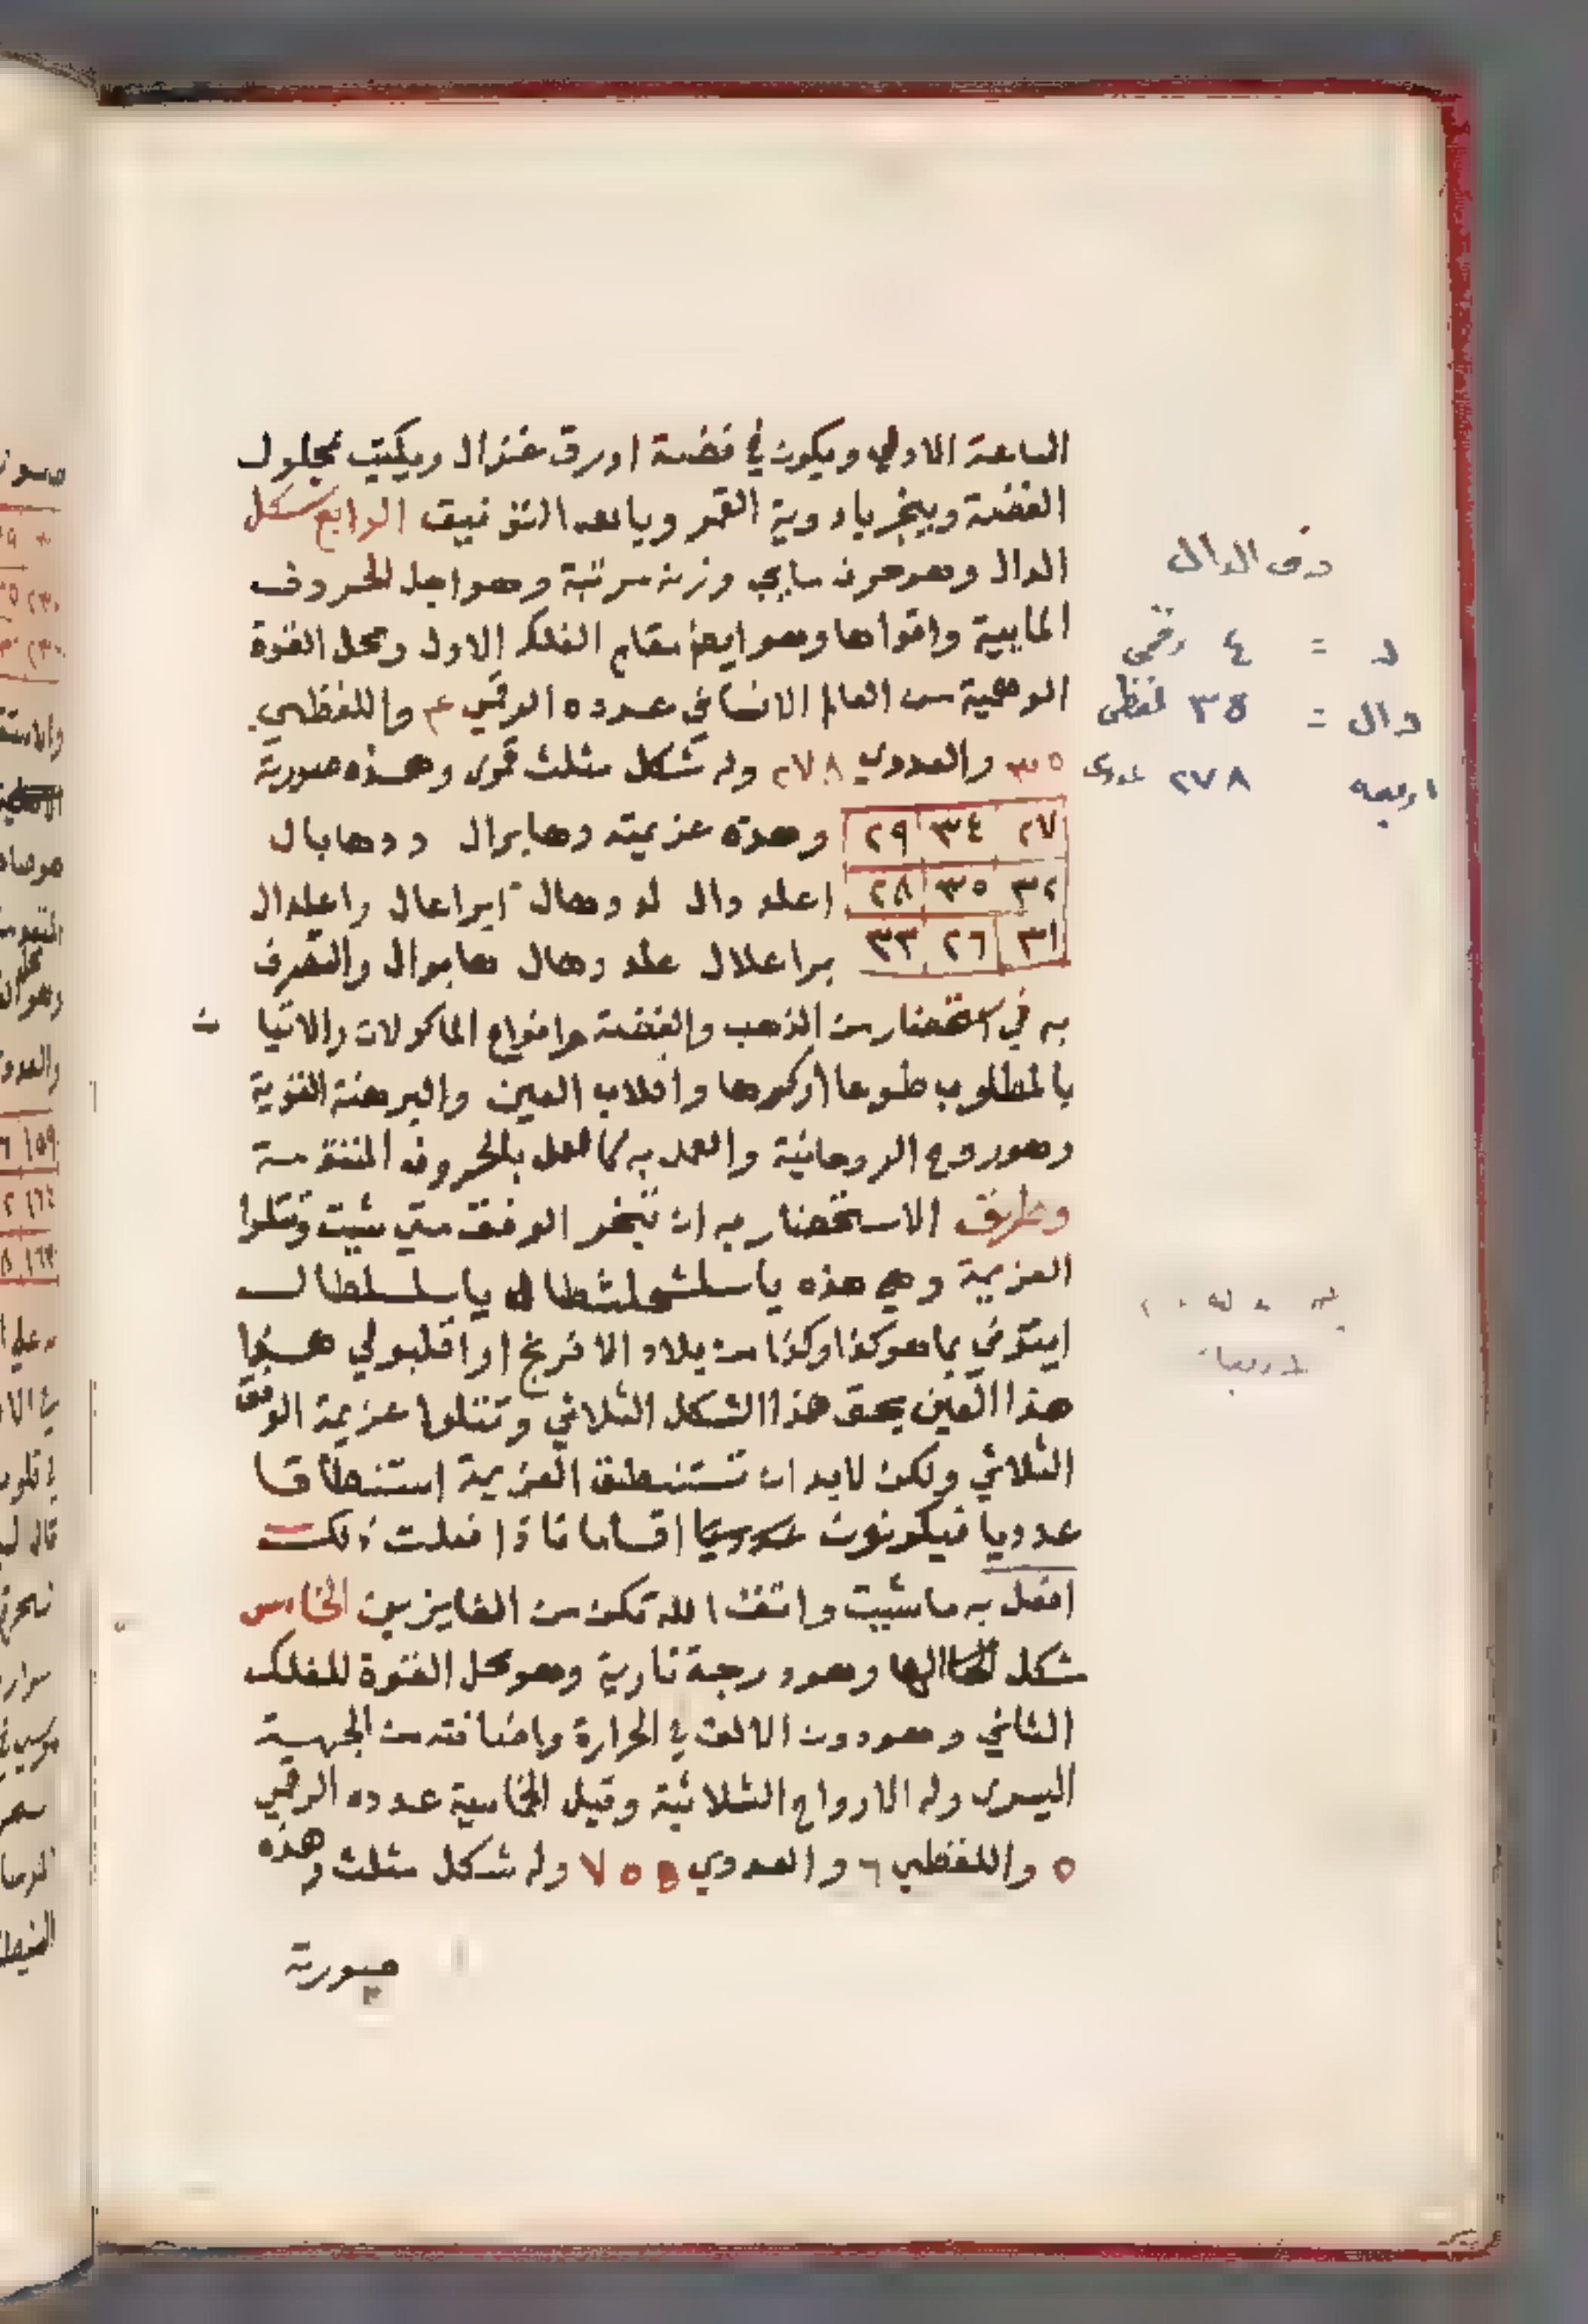 الساعة الاولي ويكون في فضة او رق غزال ويكتب بمحلول
الفضة ويبخر بادوية القمر وبالله التوفيق الرابع شكل
الدال وهو حرف مايي وزنه مرتبة وهو اجل الحروف
المايية واقواها وهو ايضا مقام الفلك الاول ومحل القوة
الوهمية من العالم الانساني عدده الرقمي ٤ واللفظي
٣٥ والعددي ٢٧٨ وله شكل مثلث قوي وهذه صورته
٢٧ ٣٤ ٢٩ وهذه عزيمته دهابرال ددهابال
٣٢ ٣٥ ٢٨ اعلد دال لد دهال ايراعال واعلدال
٣١ ٢٦ ٣٣ براعلال علد دهال هابوال والتصرف
به في استحضار من الذهب والفضة وانواع الماكولات والاتيا ت
بالمطلوب طوعا او كرها واقلاب العين والبرهنة القوية
وهو روح الروحانية والعمل به كالعمل بالحروف المتقدمة
وطريق الاستحضار به ان تبخر الوفق متي شيت وتتلوا
العزيمة وهي هذه ياسلشملشطال ياسلسلطال
ايتوني بما هو كذا وكذا من بلاد الافرنج او اقلبوا لي
هذا العين بحق هذا الشكل الثلاثي وتتلوا عزيمة الوفق
الثلاثي ولكن لابد ان تستنطق العزيمة استنطاقا
عدديا فيكونون اقساما فاذا فعلت ذلك
افعل به ما شيت واتق الله تكن من الفايزين الخامس
شكل الها وهو درجة نارية وهو محل القوة للفلك
الثاني وهو دون الالف في الحرارة واضافته من الجهة
اليسري وله الارواح الثلاثية وقيل الخماسية عدده الرقمي
٥ واللفظي ٦ والعددي ٧٠٥ وله شكل مثلث وهذه
صورته
وفق الدال
د = ٤ رقمي
دال = ٣٥ لفظي
اربعه ٢٧٨ عددي